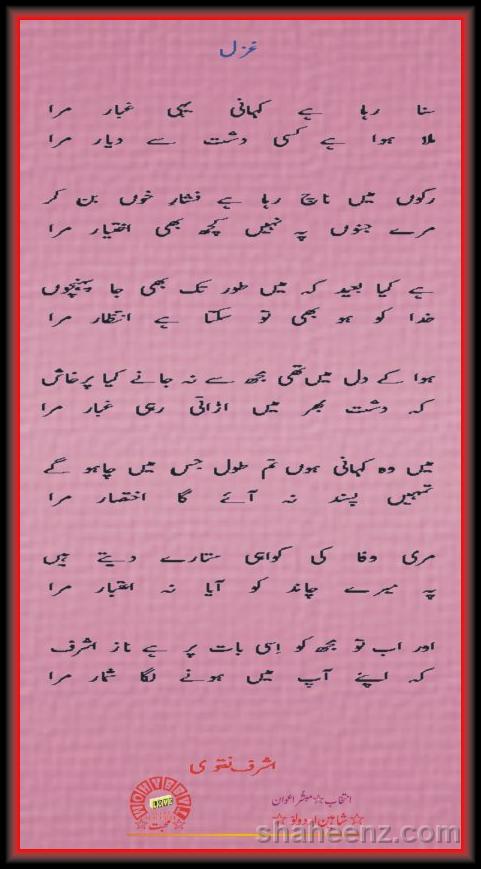 غزل
سنا رہا ہے کہانی یہی غبار مرا
ملا ہوا ہے کسی دشت سے دیار مرا
رگوں میں ناچ رہا ہے فشار خوں بن کر
مرے جنوں پہ نہیں کچھ بھی اختیار مرا
ہے کیا بعید کہ میں طور تک بھی جا پہنچوں
خدا کو ہو بھی تو سکتا ہے انتظار مرا
ہوا کے دل میں تھی مجھ سے نہ جانے کیا پرخاش
کہ دشت بھر میں اڑاتی رہی غبار مرا
میں وہ کہانی ہوں تم طول جس میں چاہو گے
تمہیں پسند نہ آئے گا اختصار مرا
مری وفا کی گواہی ستارے دیتے ہیں
پہ میرے چاند کو آیا نہ اعتبار مرا
اور اب تو مجھ کو اِسی بات پر ہے ناز اشرف
کہ اپنے آپ میں ہونے لگا شمار مرا
اشرف نقوی
انتخاب☆مبشر اعوان
☆شاہین اردولو☆
LOVE
☆محبت☆
shaheenz.com